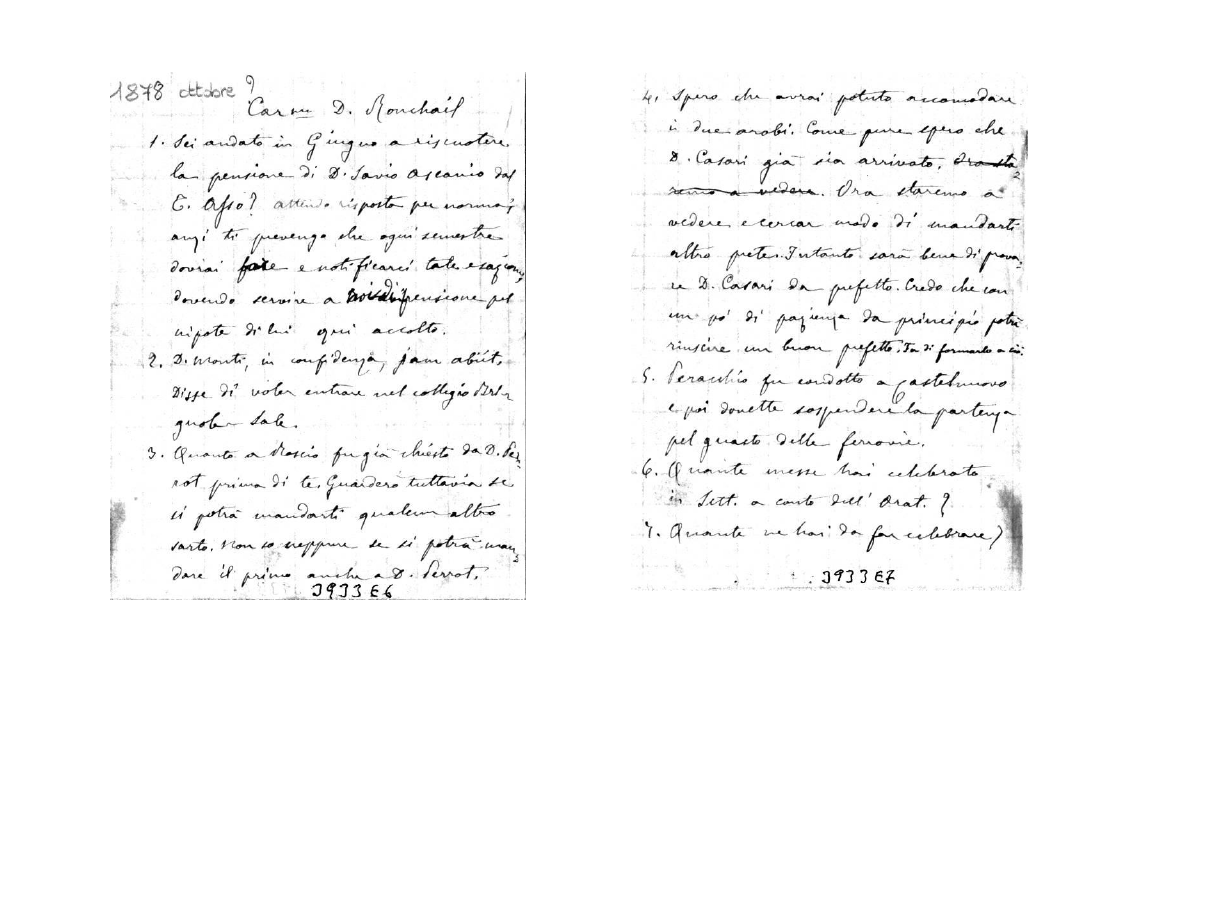 1878 ottobre ?
Car.mo D. Ronchail
1. Sei andato in Giugno a riscuotere
la pensione di D. Savio Ascanio dal
T. Asso? attendo risposta per norma;
anzi ti prevengo che ogni semestre
dovrai fare e notificarci tale esazione,
dovendo servire a pensione pel
nipote di lui qui accolto.
2. D. Monti, in confidenza, jam abiit.
Disse di voler entrare nel collegio Bri-
gnole Sale.
3. Quanto a Roscio fu già chiesto da D. Per-
rot prima di te. Guarderò tuttavia se
si potrà mandarti qualcun altro
sarto. Non so neppure se si potrà man-
dare il primo anche a D. Perrot.
3933 E6
4. Spero che avrai potuto accomodare
i due arabi. Come pure spero che
D. Casari già sia arrivato. Ora sta-
remo a vedere. Ora staremo a
vedere e cercar modo di mandarti
altro prete. Intanto sarà bene di prova-
re D. Casari da prefetto. Credo che con
un po' di pazienza da principio potrà
riuscire un buon prefetto. Fa di formarlo a ciò.
5. Peracchio fu condotto a Castelnuovo
e poi dovette sospendere la partenza
pel guasto delle ferrovie.
6. Quante messe hai celebrato
in Sett. a conto dell' Orat. ?
7. Quante ne hai da far celebrare?
3933 E7